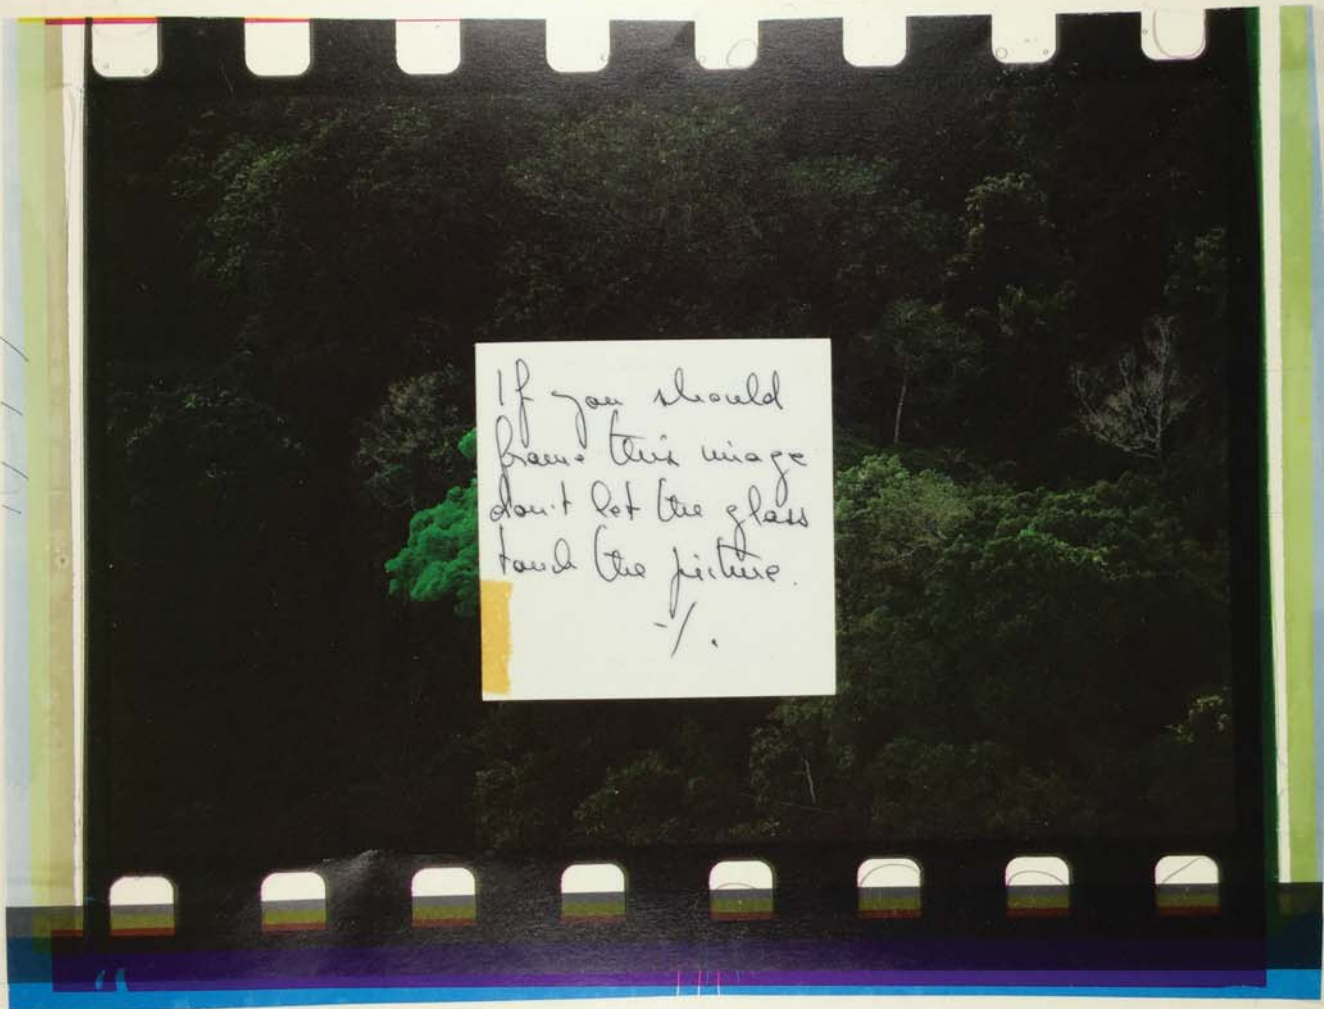 If you should
frame this image
don't let the glass
touch the picture.
-/.